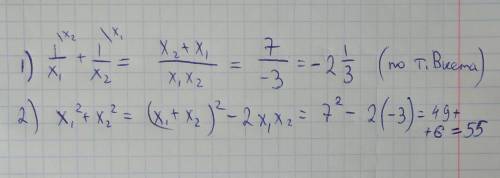 1) \x₂ 1/x₁ + \x₁ 1/x₂ = (x₂ + x₁)/(x₁x₂) = 7/-3 = -2 1/3 (по т. Виета)
2) x₁² + x₂² = (x₁ + x₂)² - 2x₁x₂ = 7² - 2(-3) = 49 +
+6 = 55